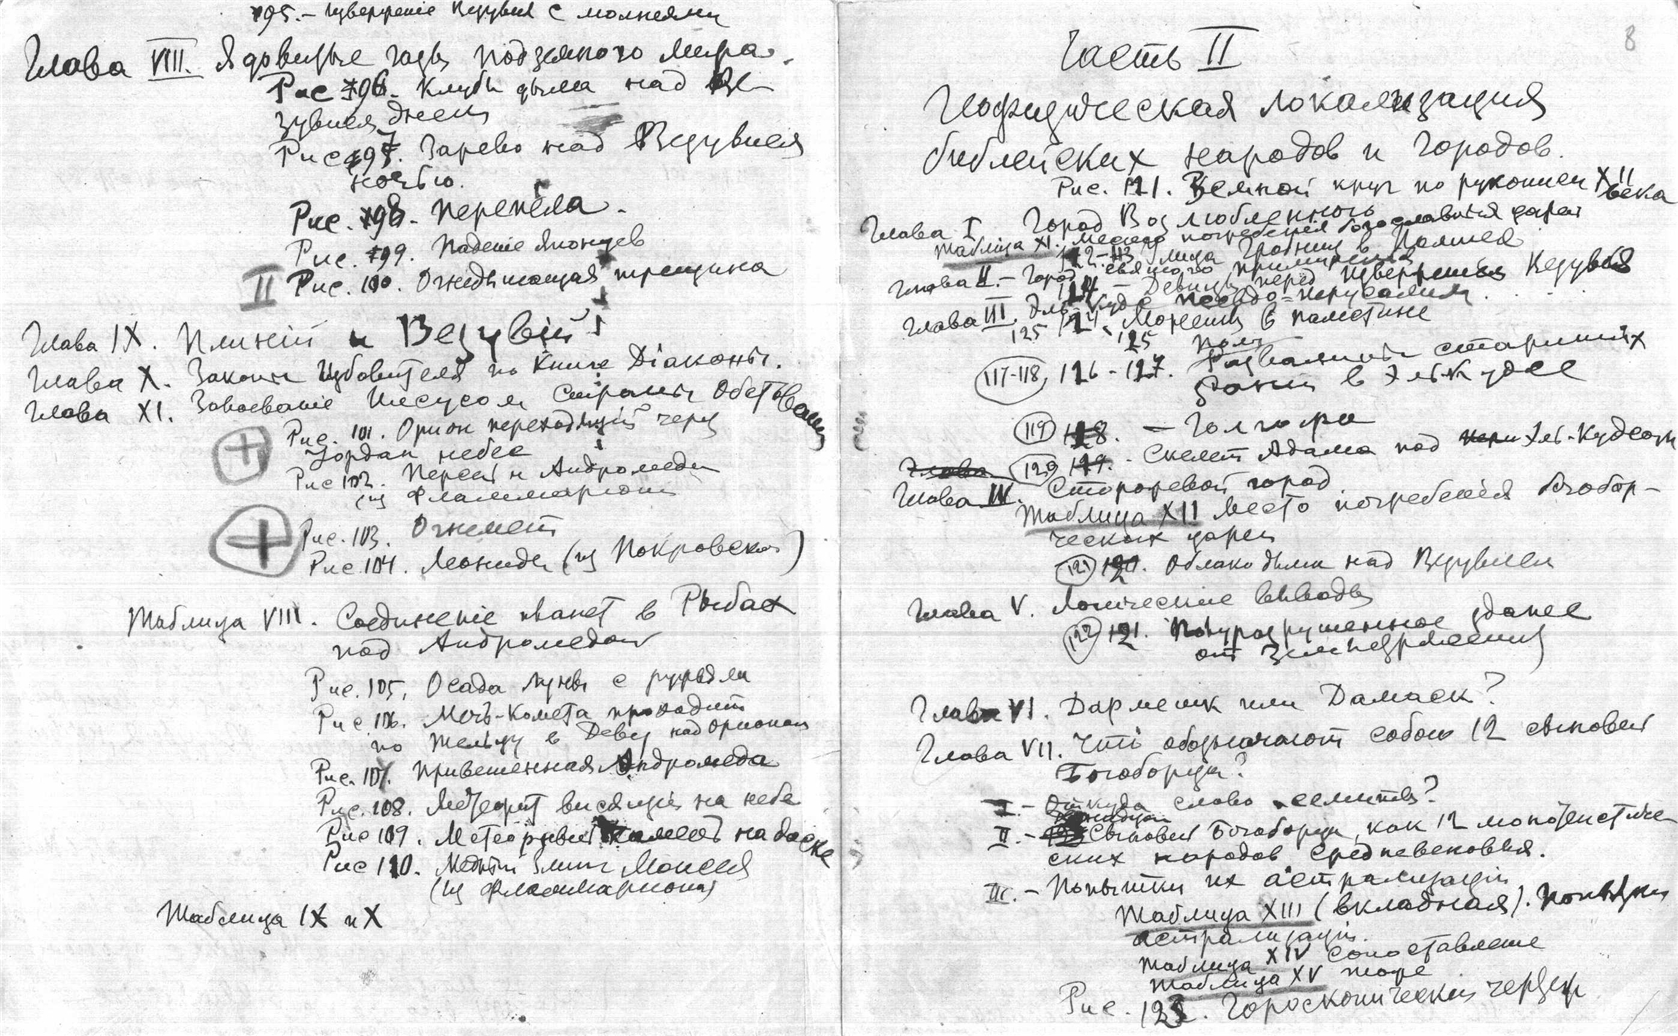 95. – изверженіе Везувія с молніями
Глава VIII. Ядовитые гады подземного мира.
Рис 96. Клубы дыма над Ве-
зувием днем
Рис 97. Зарево над Везувием
ночью.
Рис. 98. Перепела.
Рис. 99. Паденіе японцев
II Рис. 100. Огнедышащая трещина
Глава IX. Плиній и Везувій
Глава X. Законы Избавителя по Книге Діаконы.
Глава XI. Завоеваніе Иисусом страны Обетован
Рис. 101. Орион переходящій через
Іордан небес
Рис 102. Персей и Андромеда
(из Фламмариона
Рис. 103. Огнемет
Рис 104. Леониды (из Покровского)
Таблица VIII. Соединеніе планет в Рыбах
под Андромедой
Рис. 105. Осада луны с
Рис 106. Мечъ-Комета проходит
по Тельцу в Деву над Орионом
Рис. 107. Привешенная Андромеда
Рис. 108. Метеорит висящій на небе
Рис 109. Метеорный камень на
Рис 110. Медный Змий Моисея
(из Фламмариона)
Таблица IX и X
8
Часть II
Геофизическая локализация
библейских народов и городов.
Рис. 121. Земной круг по рукописи XII
века
Глава I Город Возлюбленного
Таблица XI. Место погребения богославимых царей
122-113 улица Гробниц в Помпее
Глава II. – Город святого примирения
114 – Девицы перед извержением Везувия
Глава III. Эль-Кудс псевдо-Иерусалим
125 124. Моисеи в Палестине
125 Поль
117-118, 126-127. Развалины старинных
в Эль-Кудсе
119 118. – Голгофа
129 119. Скелет Адама под Эль-Кудсом
Глава IV. Сторожевой город
Таблица XII Место погребенія богобор-
ческих царей
121 120. Облако дыма над Везувием
Глава V. Логические выводы
122 121. Полуразрушенное здание
от землетрясения
Глава VI. Дармешк или Дамаск?
Глава VII. Что обозначают собою 12 сыновей
Богоборца?
I – Откуда слово семиты?
II. – Сыновей Богоборца, как 12 монотеистиче
ских народов средневековья.
III. – Попытки их астрализаціи
Таблица XIII (вкладная). Попытки
астрализаціи.
Таблица XIV Сопоставление
Таблица XV тоже
Рис. 123. Гороскопический чертеж